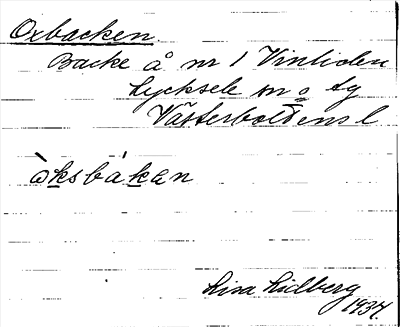 Oxbacken
Backe å nr 1 Vinliden
Lycksele sn o tg
Västerbottens l
òksbákan
Lisa Lidberg
1934.